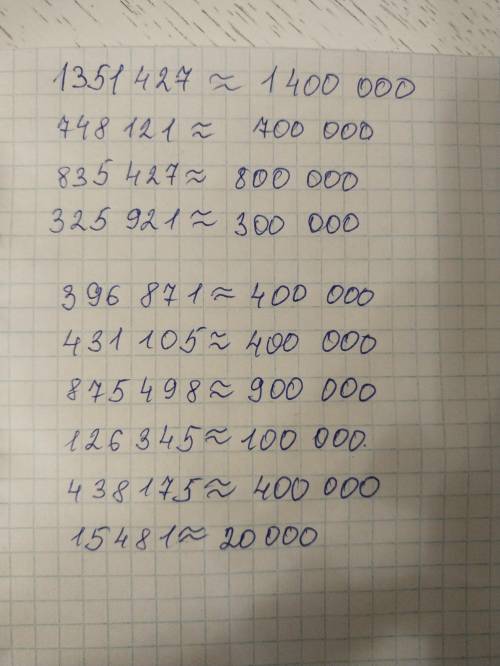 1351 427 ≈ 1 400 000
748 121 ≈ 700 000
835 427 ≈ 800 000
325 921 ≈ 300 000
396 871 ≈ 400 000
431 105 ≈ 400 000
875 498 ≈ 900 000
126 345 ≈ 100 000.
438 175 ≈ 400 000
15481 ≈ 20 000